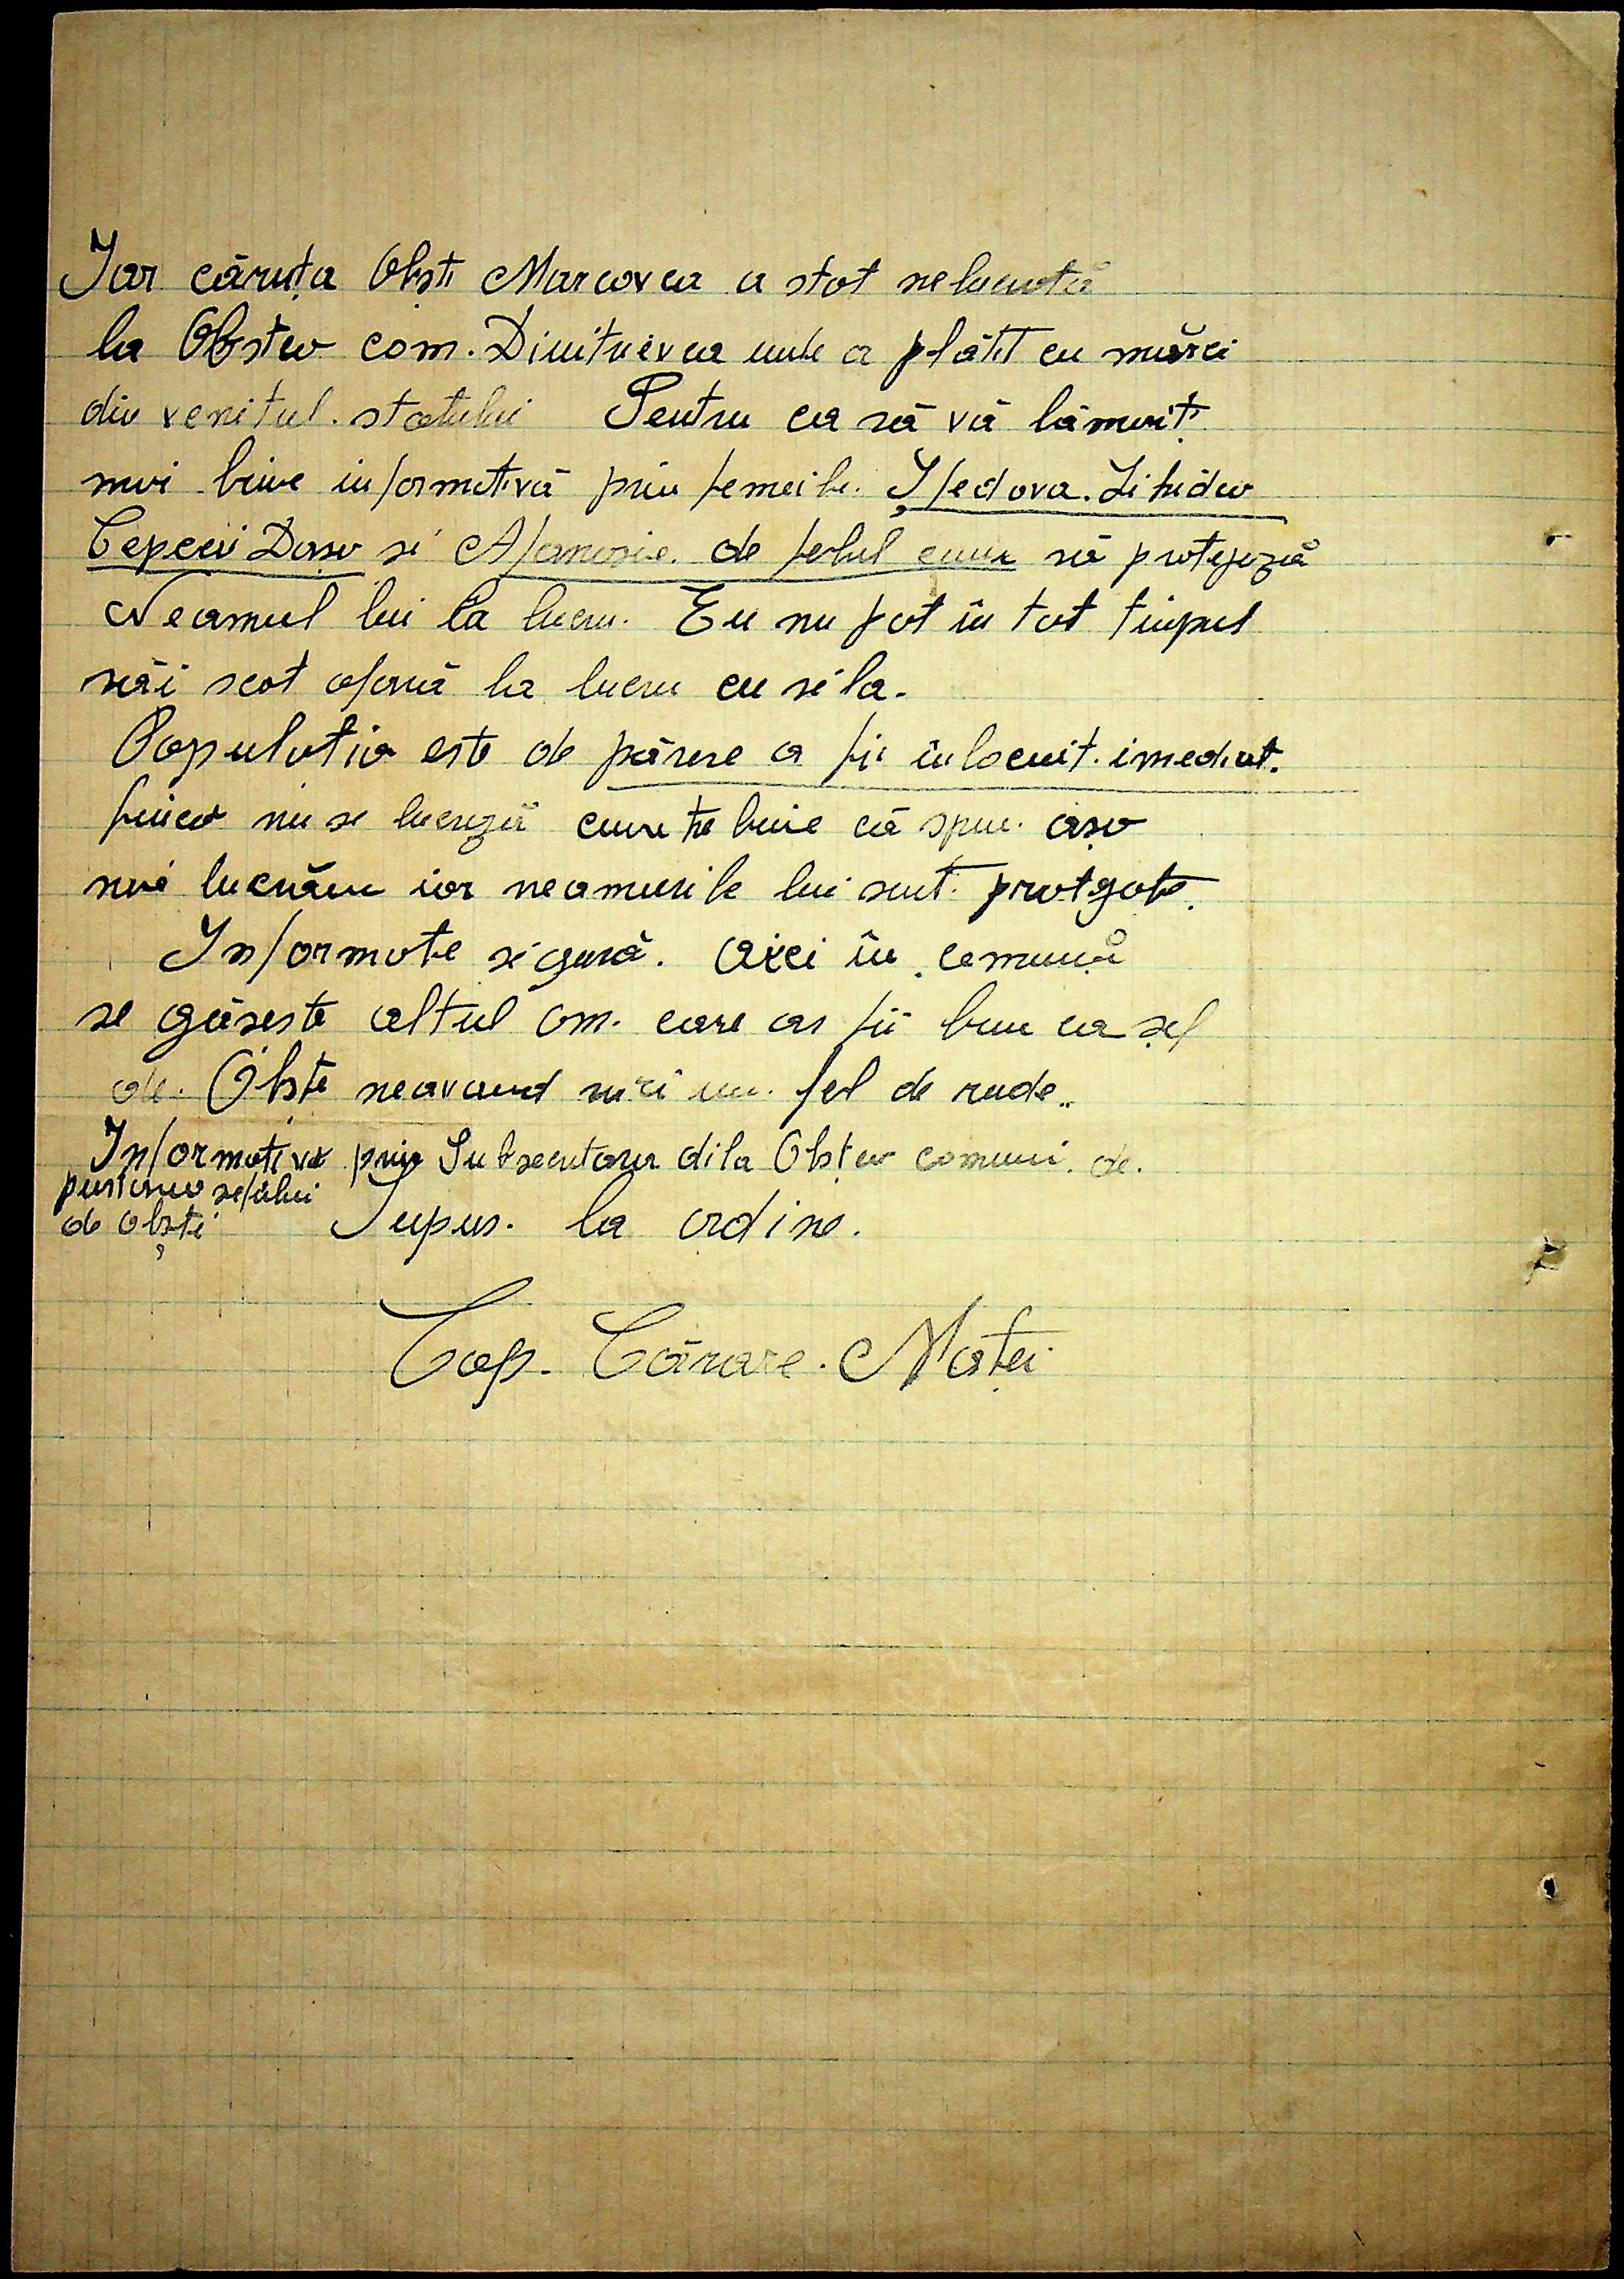 Iar căruța Obști Marcovca a stat nelucrată
la Obștea com. Dimitrievca unde a plătit cu mărci
din venitul. statului Pentru ca să vă lămuriți
mai bine informativă prin femeile. Lihidea
Cepcei Dașa si Afanasie. de felul cum să protejază
Neamul lui la lucru. Eu nu pot în tot timpul
săi scot afară la lucru cu sila.
Populatia este de părere a fi înlocuit. imediat.
fiica nu se lucrază cum trebuie că spun. așa
noi lucrăm iar neamurile lui sunt. protgate.
Informate sigură. aici în comună
se găseste altul om. care ar fii bun ca șef
de. Obște neavand nici un. fel de rude..
Informativă prin Subsecutaru dila Obștea comuni. de.
pustirea sefului
de obști
Supus. la ordine.
Cap. Cărare. Matei